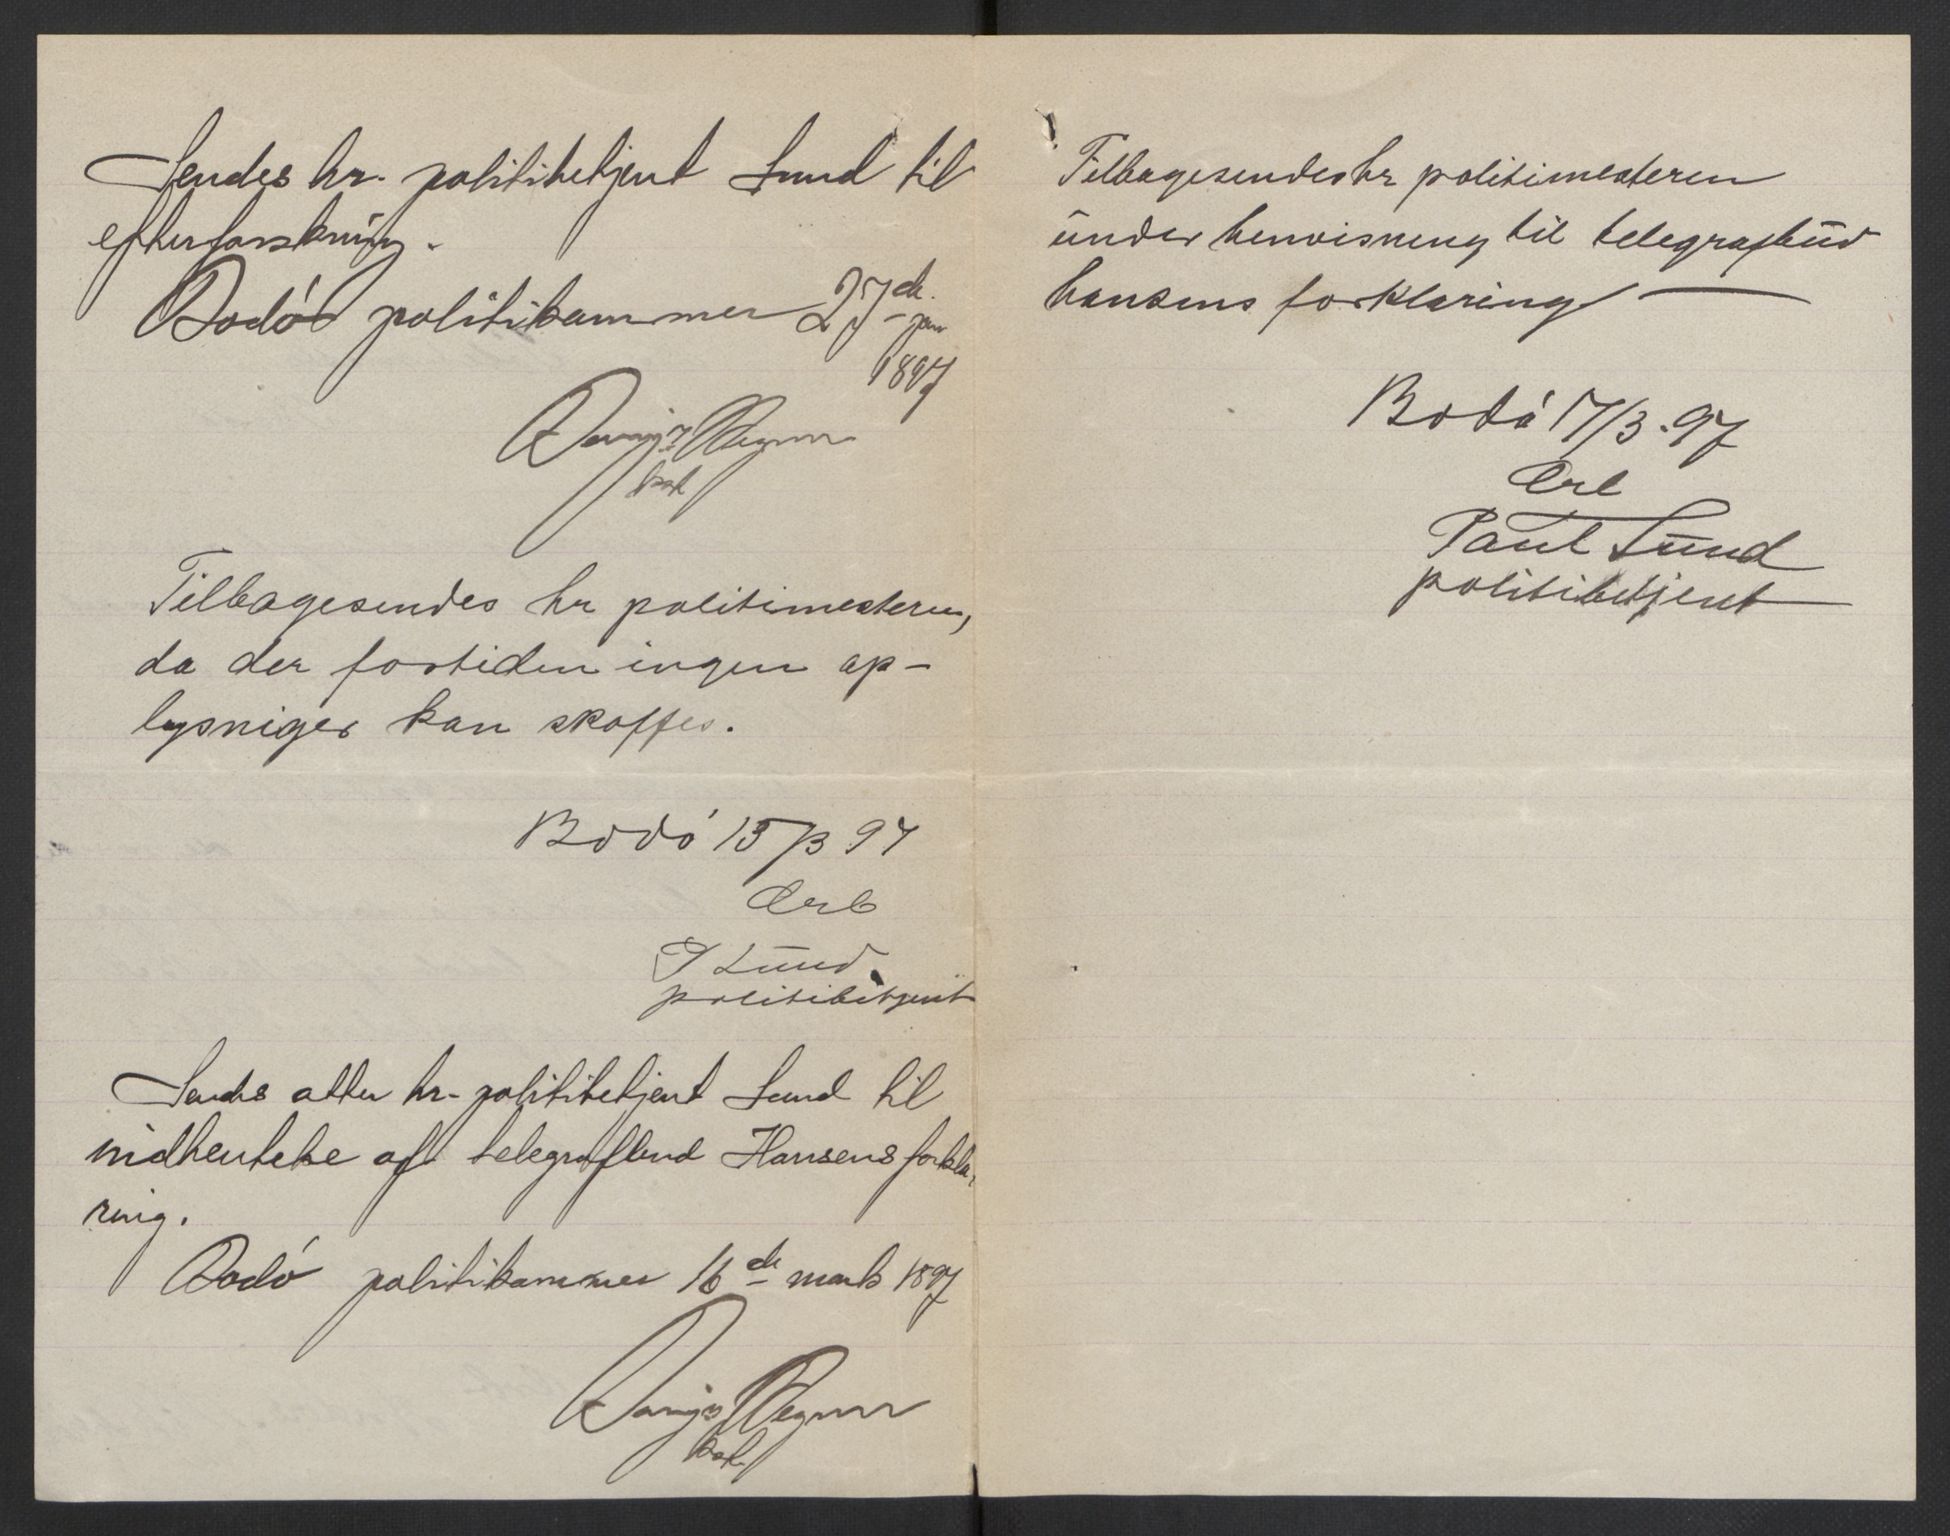 Sendes hr. politibetjent Lund til
efterforskning.
Bodø politikammer 27de jan
1897
kst
Tilbagesendes hr politimesteren,
da der fortiden ingen op-
lysniger kan skaffes.
Bodó 15/3 97
Ærb
P Lund
politibetjent
Sendes atter hr. politibetjent Lund til
indhentelse af telegrafbud Hansens forkla-
ring.
Bodó politikammer 16de marts 1897
kst.
Tilbagesendes hr politimesteren
under henvisning til telegrafbud
hansens forklaring
Bodó 17/3.97
Ærb
Paul Lund
politibetjent